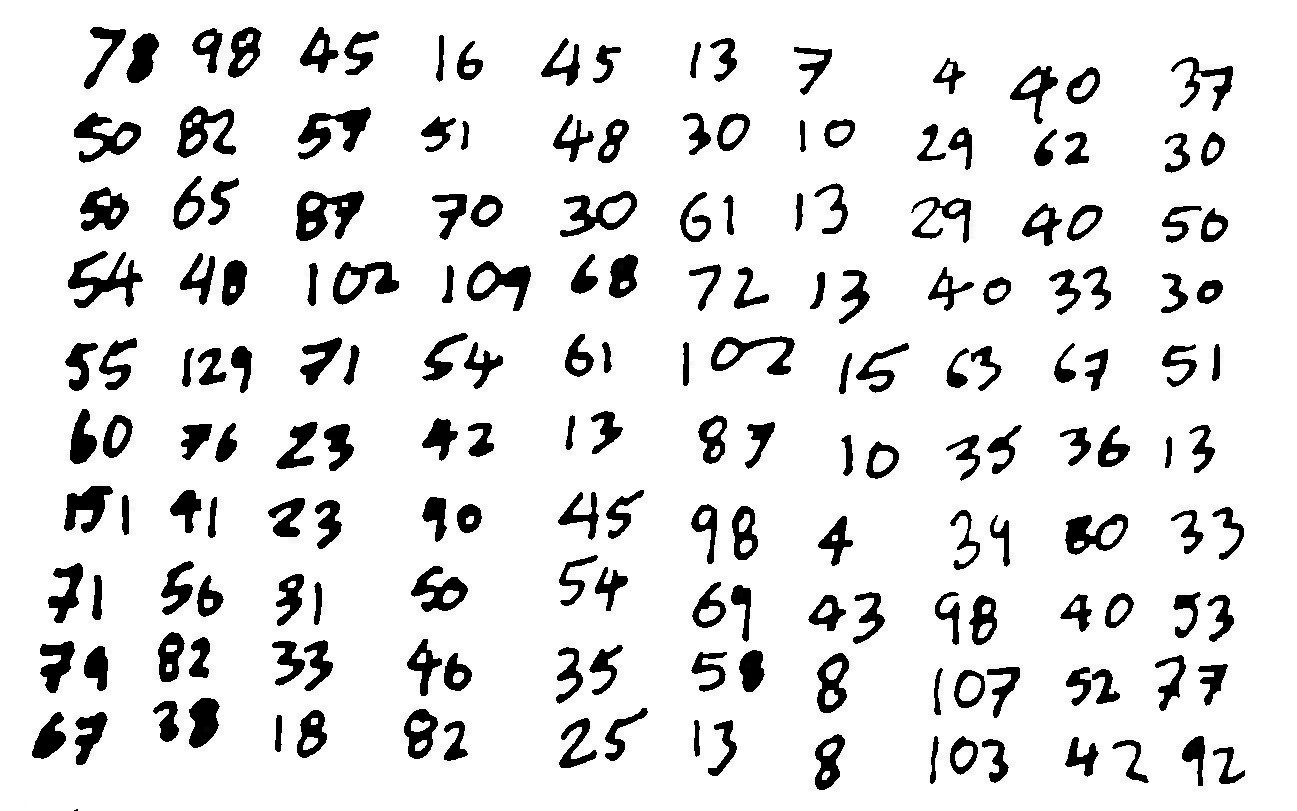 78 98 45 16 45 13 7 4 40 37
50 82 57 51 48 30 10 29 62 30
50 65 87 70 30 61 13 29 40 50
54 48 102 109 68 72 13 40 33 30
55 129 71 54 61 102 15 63 67 51
60 76 23 42 13 87 10 35 36 13
41 23 90 45 98 4 34 80 33
71 56 31 50 54 69 43 98 40 53
79 82 33 46 35 58 8 107 52 77
67 38 18 82 25 13 8 103 42 92